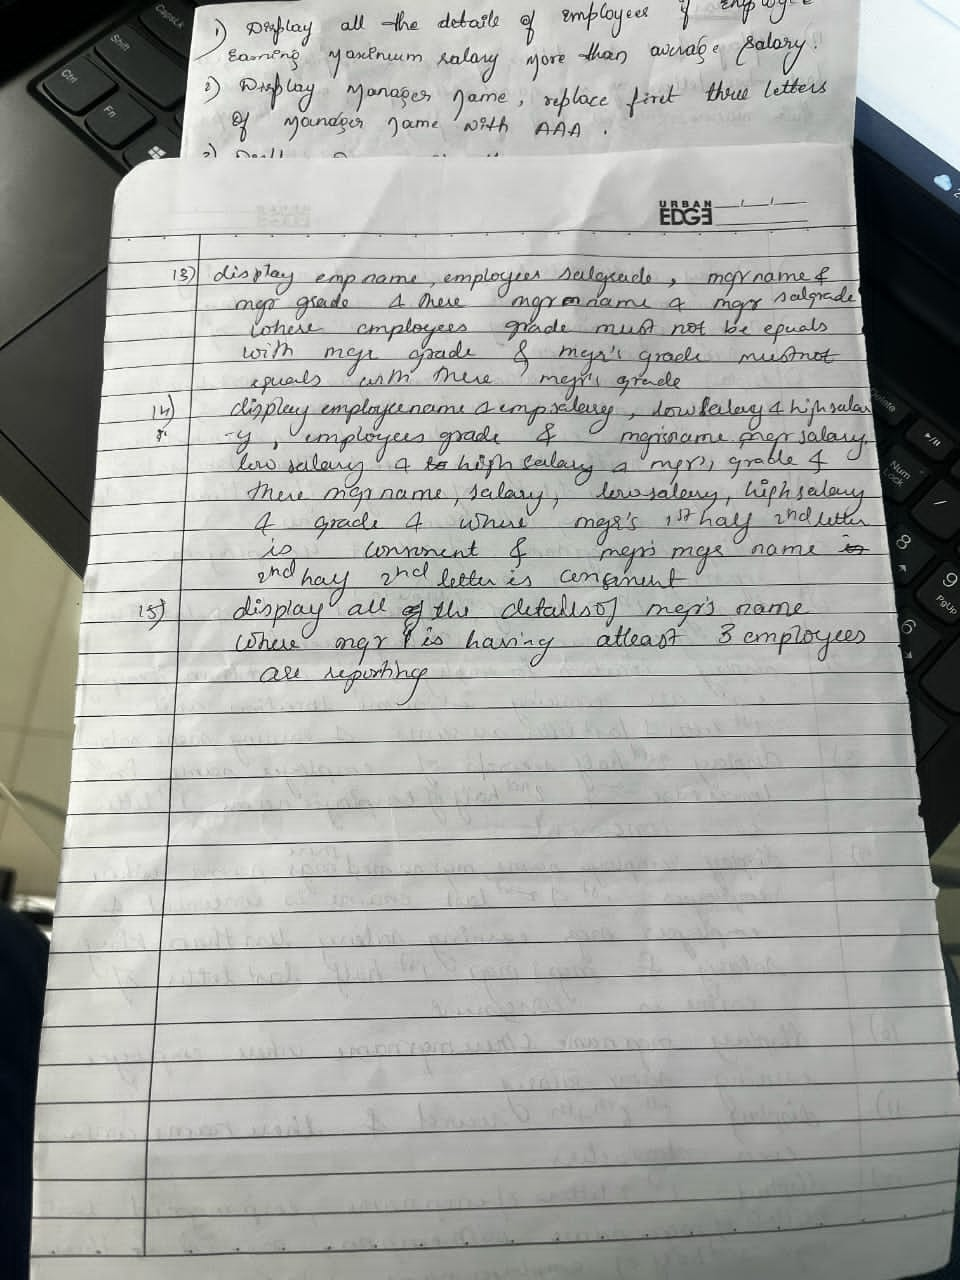 1) Display all the details of employees if employee
Earning Maximum salary More than average salary.
2) Display Manager Name, replace first three letters
Of Manager Name with AAA.
URBAN
EDGE
13) display emp name, employees salgrade, mgr name &
mgr grade & there mgr name & mgr salgrade
where employees grade must not be equals
with mgr grade & mgr's grade mustnot
equals with there mgr's grade
14) display employeename & emp salary, low salary & high salar
-y, employees grade & mgrsname mgr salary,
low salary & high salary & mgr's grade &
there mgr name, salary, lowsalary, highsalary
& grade & where mgr's 1st half 2nd letter
is consonent & mgr's mgr name is
2nd haly 2nd letter is consonent
15) display all of the details of mgr's name
where mgr is having atleast 3 employees
are reporting
CapsLk
Shift
Ctrl
Fn
Delete
Num
Lock
8
9
PgUp
6